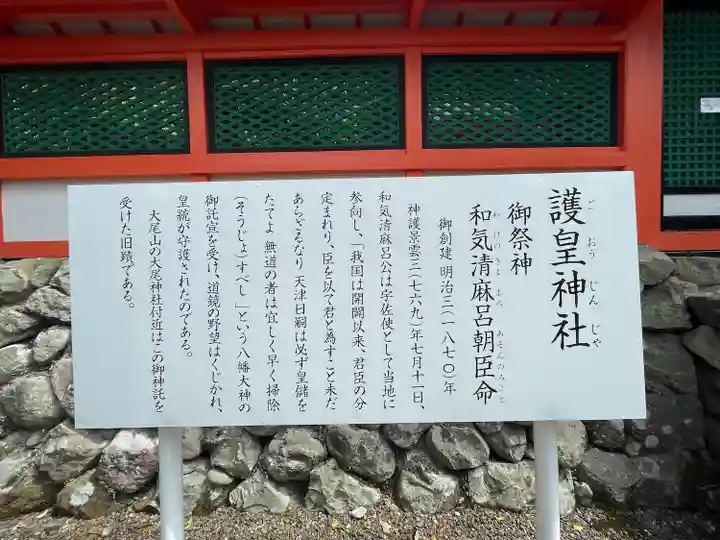 護皇神社
ごおうじんじゃ
御祭神
和気清麻呂朝臣命
わけのきよまろあそんのみこと
御創建 明治三(一八七〇)年
神護景雲三(七六九)年七月十一日、
和気清麻呂公は宇佐使として当地に
参向し、「我国は開闢以来、君臣の分
定まれり、臣を以て君と為すこと未だ
あらざるなり 天津日嗣は必ず皇儲を
たてよ 無道の者は宜しく早く掃除
(そうじょ)すべし」という八幡大神の
御託宣を受け、道鏡の野望はくじかれ、
皇統が守護されたのである。
大尾山の大尾神社付近はこの御神託を
受けた旧蹟である。